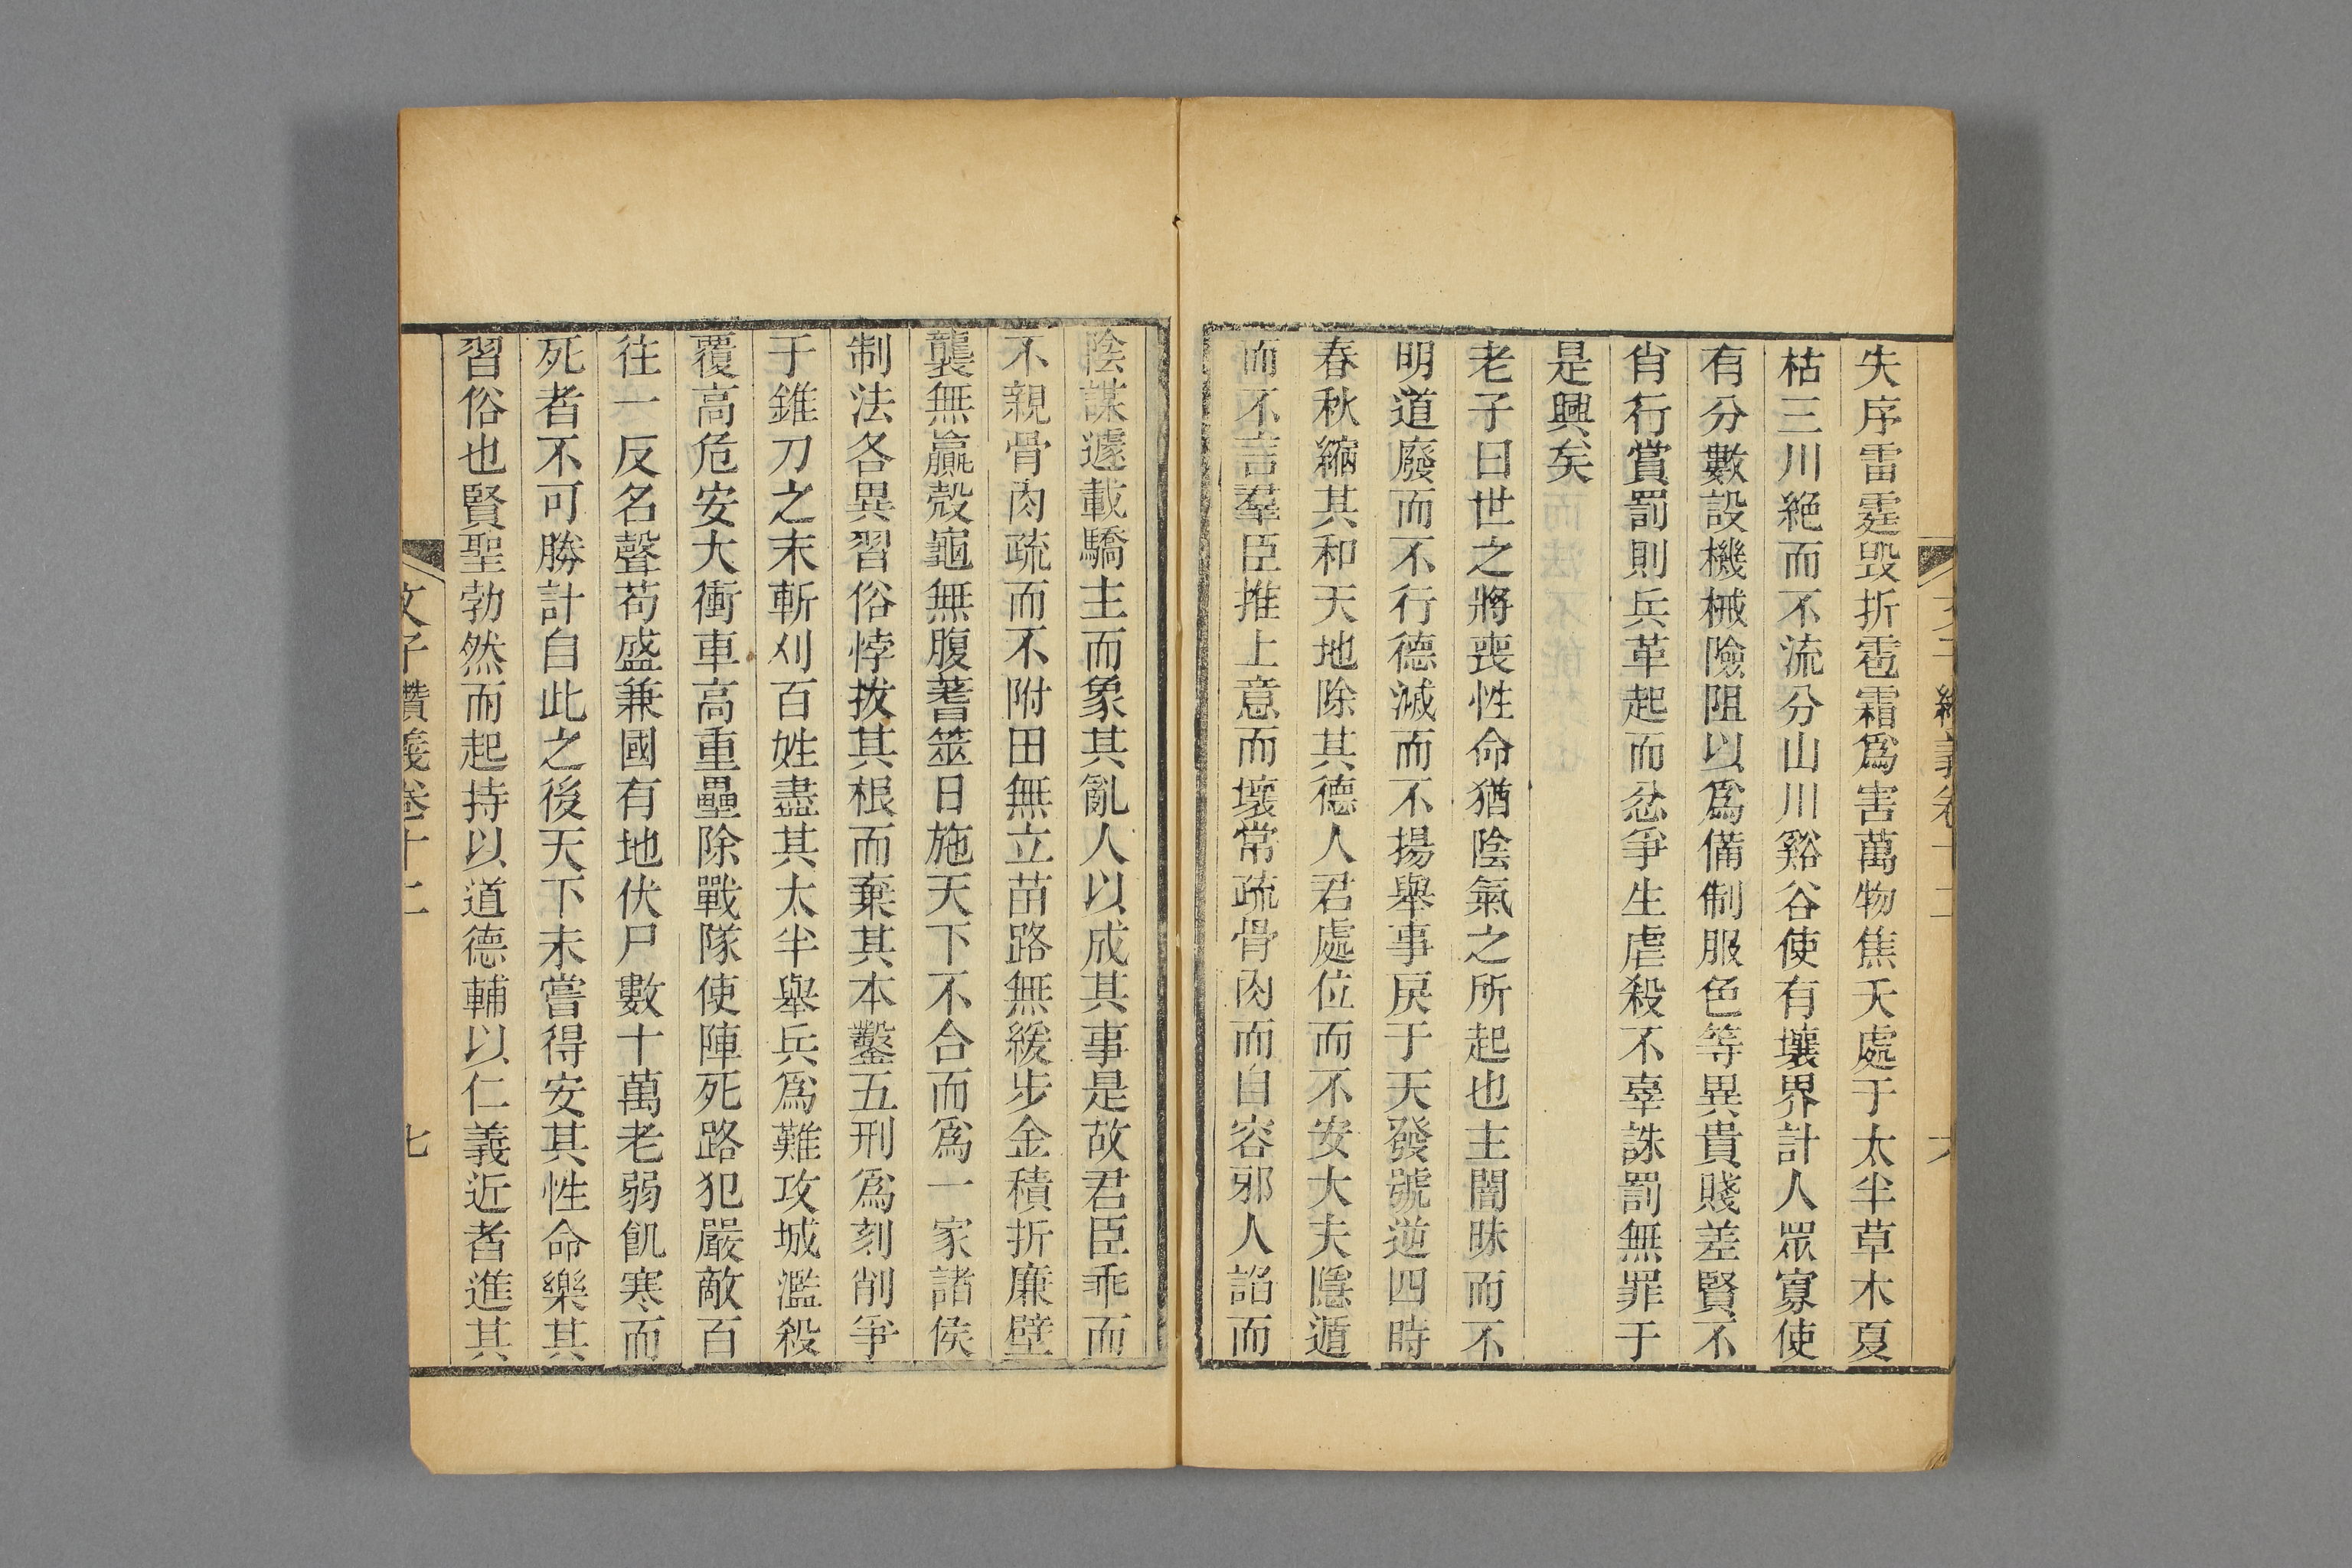 失序雷霆毀折雹霜爲害萬物焦夭處于太半草木夏
枯三川絶而不流分山川谿谷使有壤界計人眾寡使
有分數設機械險阻以爲備制服色等異貴賤差賢不
肖行賞罰則兵革起而忿爭生虐殺不辜誅罰無罪于
是興矣
老子曰世之將喪性命猶陰氣之所起也主闇昧而不
明道廢而不行德滅而不揚舉事戾于天發號逆四時
春秋縮其和天地除其德人君處位而不安大夫隱遁
而不言羣臣推上意而壞常疏骨肉而自容邪人諂而
陰謀遽載驕主而象其亂人以成其事是故君臣乖而
不親骨肉疏而不附田無立苗路無緩步金積折廉壁
襲無贏殼龜無腹蓍筮日施天下不合而爲一家諸侯
制法各異習俗悖拔其根而棄其本鑿五刑爲刻削爭
于錐刀之末斬刈百姓盡其太半舉兵爲難攻城濫殺
覆高危安大衝車高重壘除戰隊使陣死路犯嚴敵百
往一反名聲苟盛兼國有地伏尸數十萬老弱飢寒而
死者不可勝計自此之後天下未嘗得安其性命樂其
習俗也賢聖勃然而起持以道德輔以仁義近者進其
文子纘義卷十二
七